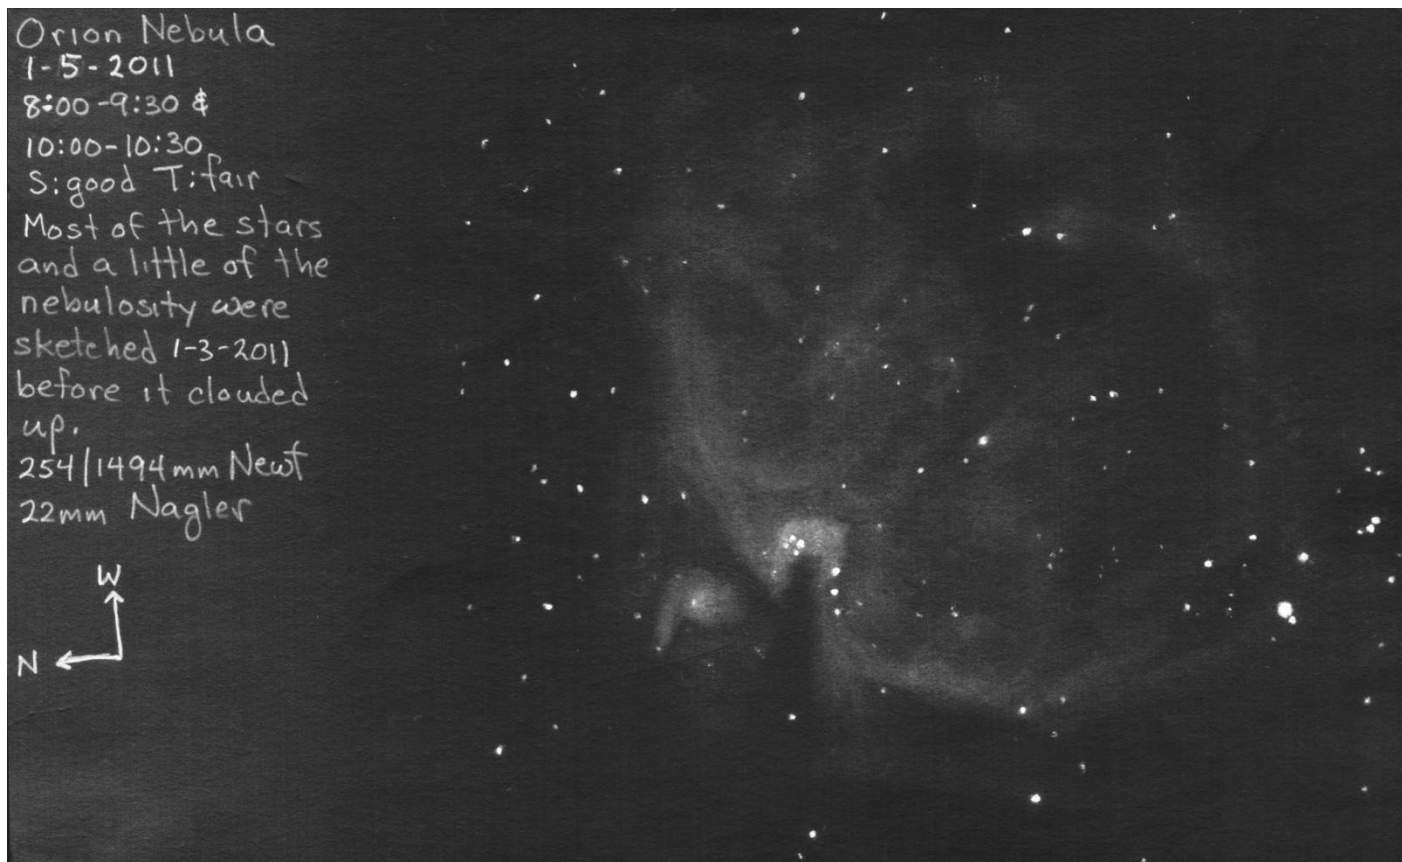 Orion Nebula
1-5-2011
8:00-9:30 &
10:00-10:30
S:good T:fair
Most of the stars
and a little of the
nebulosity were
sketched 1-3-2011
before it clouded
up.
254/1494mm Newt
22mm Nagler
W
N